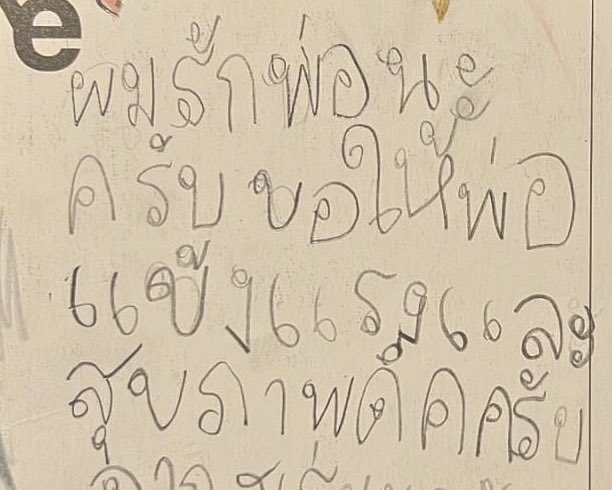 e
ผมรักพ่อนะ
ครับ ขอให้พ่อ
แข็งแรงและ
สุขภาพดีคครับ